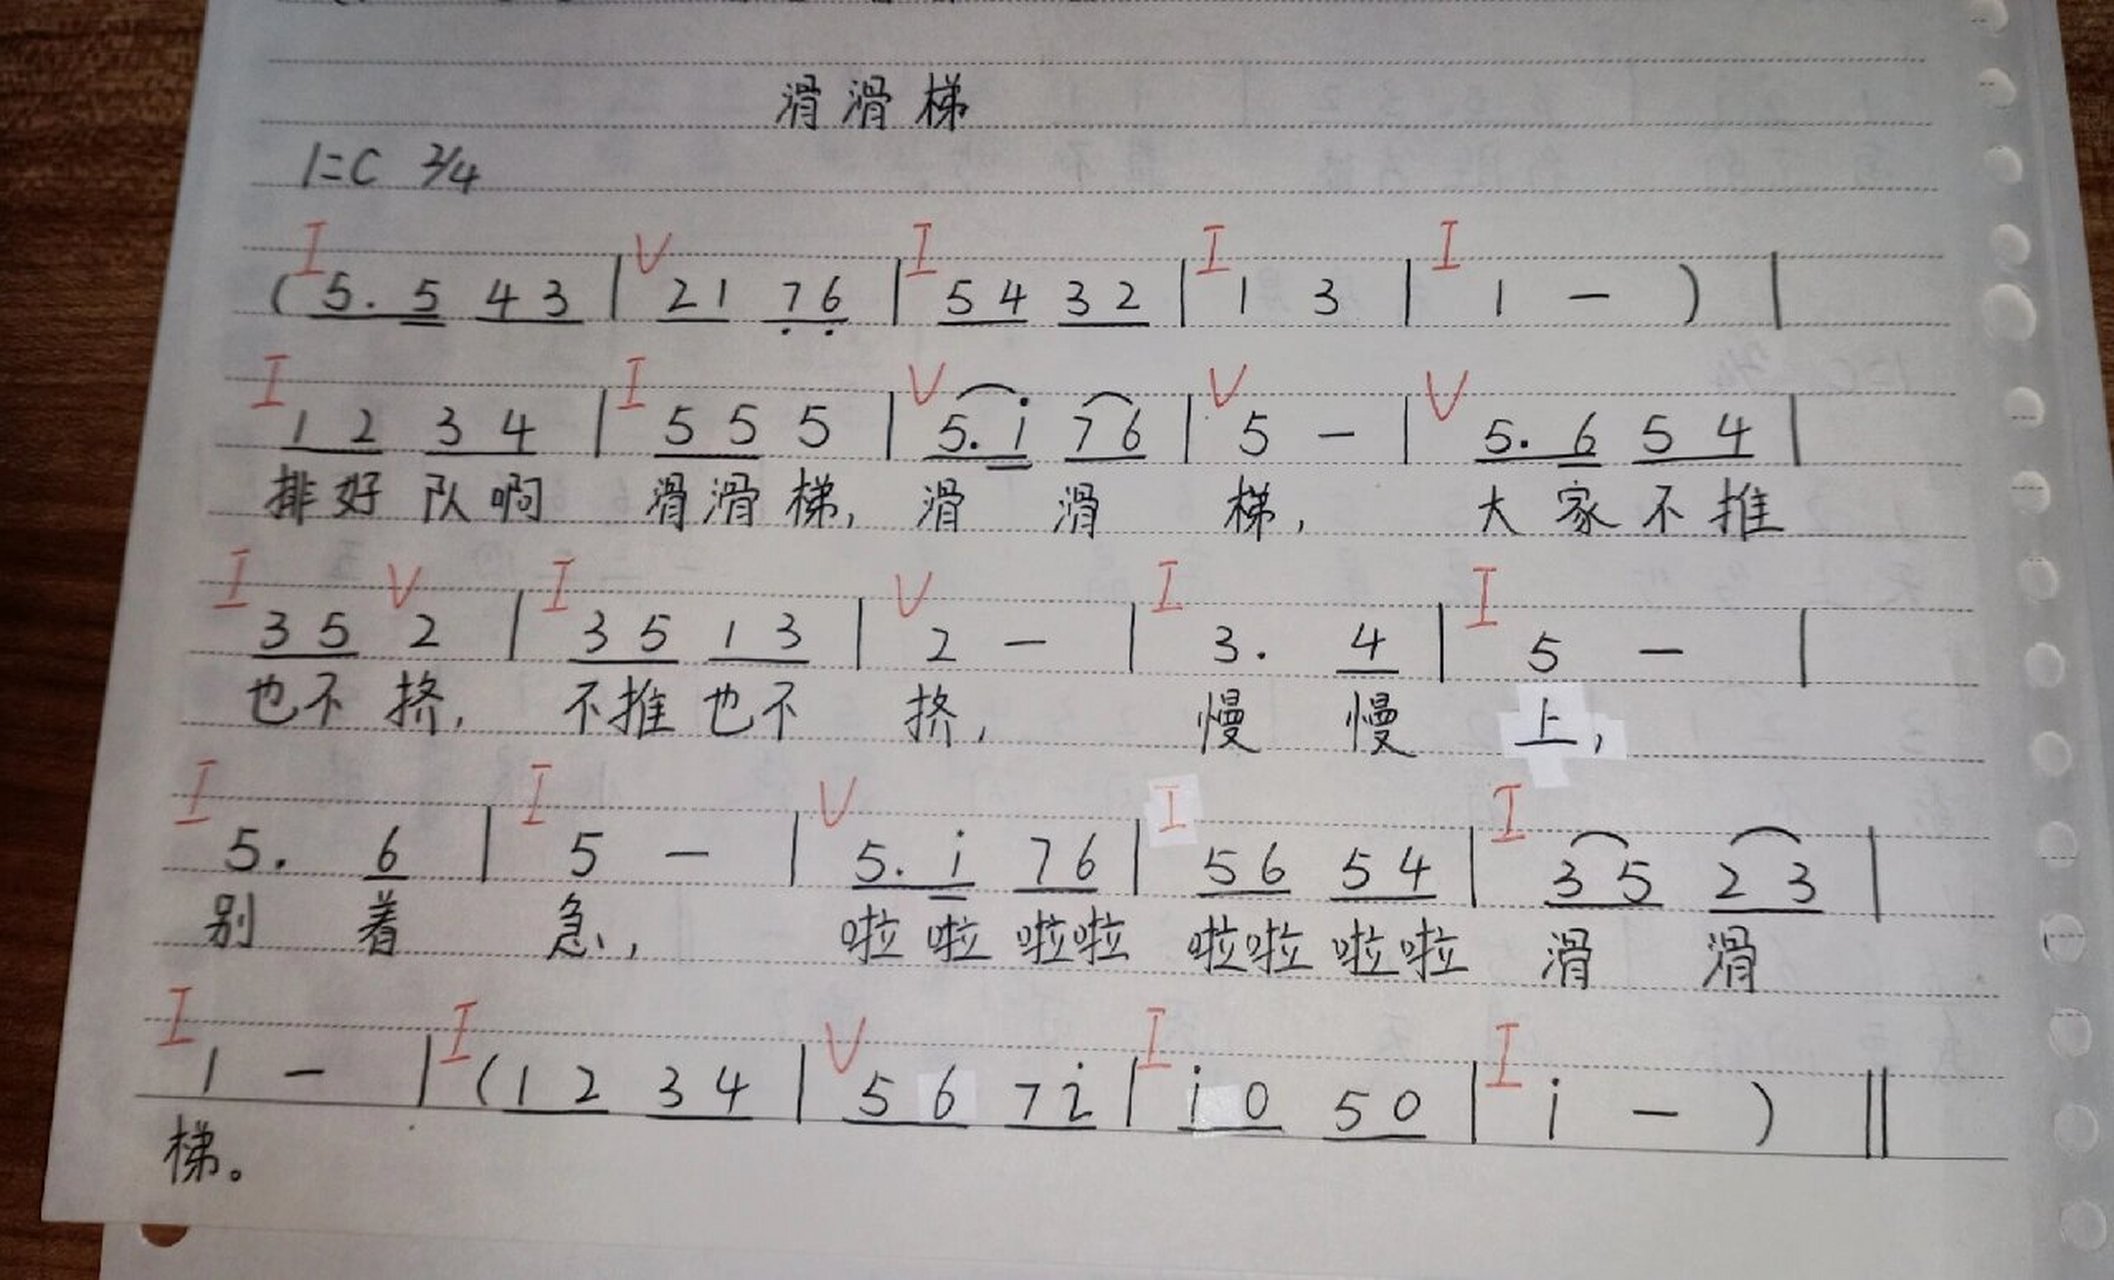 滑滑梯
1=C 2/4
I V I I I
(5. 5 4 3 | 2 1 7̣ 6̣ | 5 4 3 2 | 1 3 | 1 - ) |
I I V V V
1 2 3 4 | 5 5 5 | 5. i 7 6 | 5 - | 5. 6 5 4 |
排好队啊 滑滑梯, 滑 滑 梯, 大家不推
I V I V I I
3 5 2 | 3 5 1 3 | 2 - | 3. 4 | 5 - |
也不挤, 不推也不 挤, 慢 慢 上,
I I V I I
5. 6 | 5 - | 5. i 7 6 | 5 6 5 4 | 3 5 2 3 |
别 着 急, 啦啦啦啦 啦啦啦啦 滑 滑
I I V I I
1 - | (1 2 3 4 | 5 6 7 2̇ | i 0 5 0 | i - ) ‖
梯。